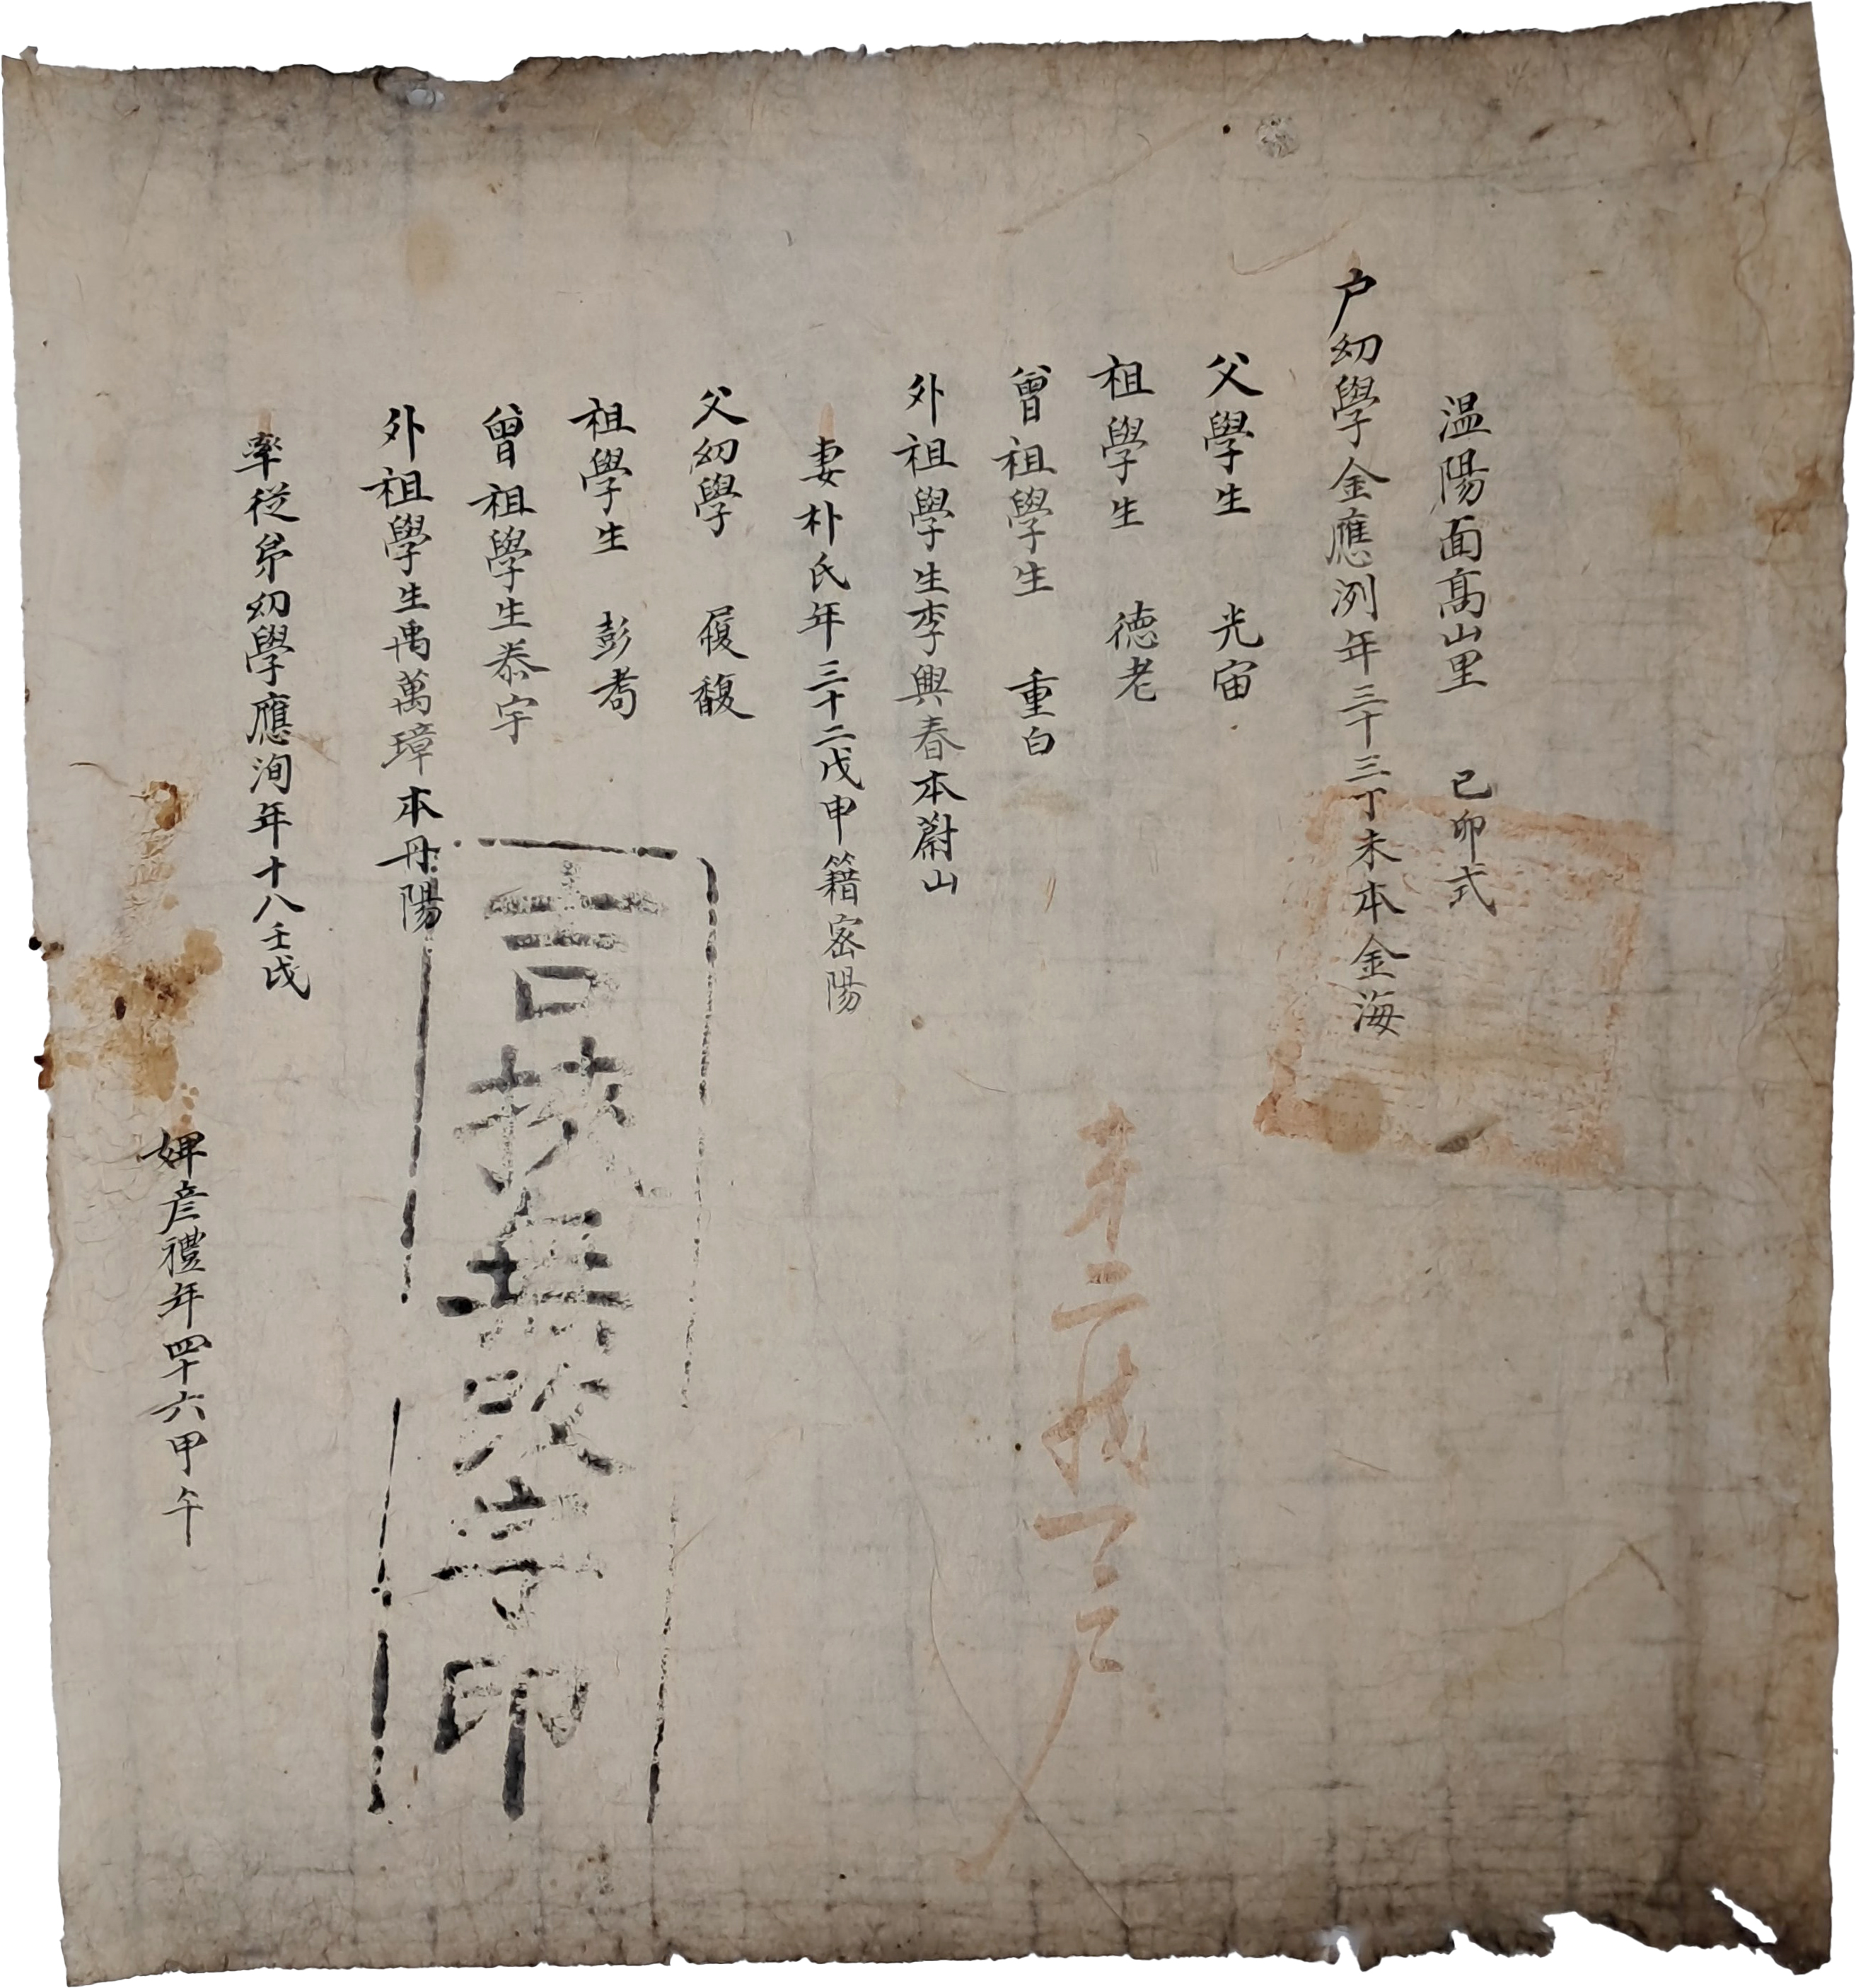 温陽面髙山里 己卯式
户幼學金應洌年三十三丁未本金海
父學生 光宙
祖學生 德老
曾祖學生 重白
外祖學生李興春本蔚山
妻朴氏年三十二戊申籍密陽
父幼學 履馥
祖學生 彭耇
曾祖學生泰宇
外祖學生禹萬璋本丹陽
率從弟幼學應洵年十八壬戌
婢彦禮年四十六甲午
第二統
戶
無改字印